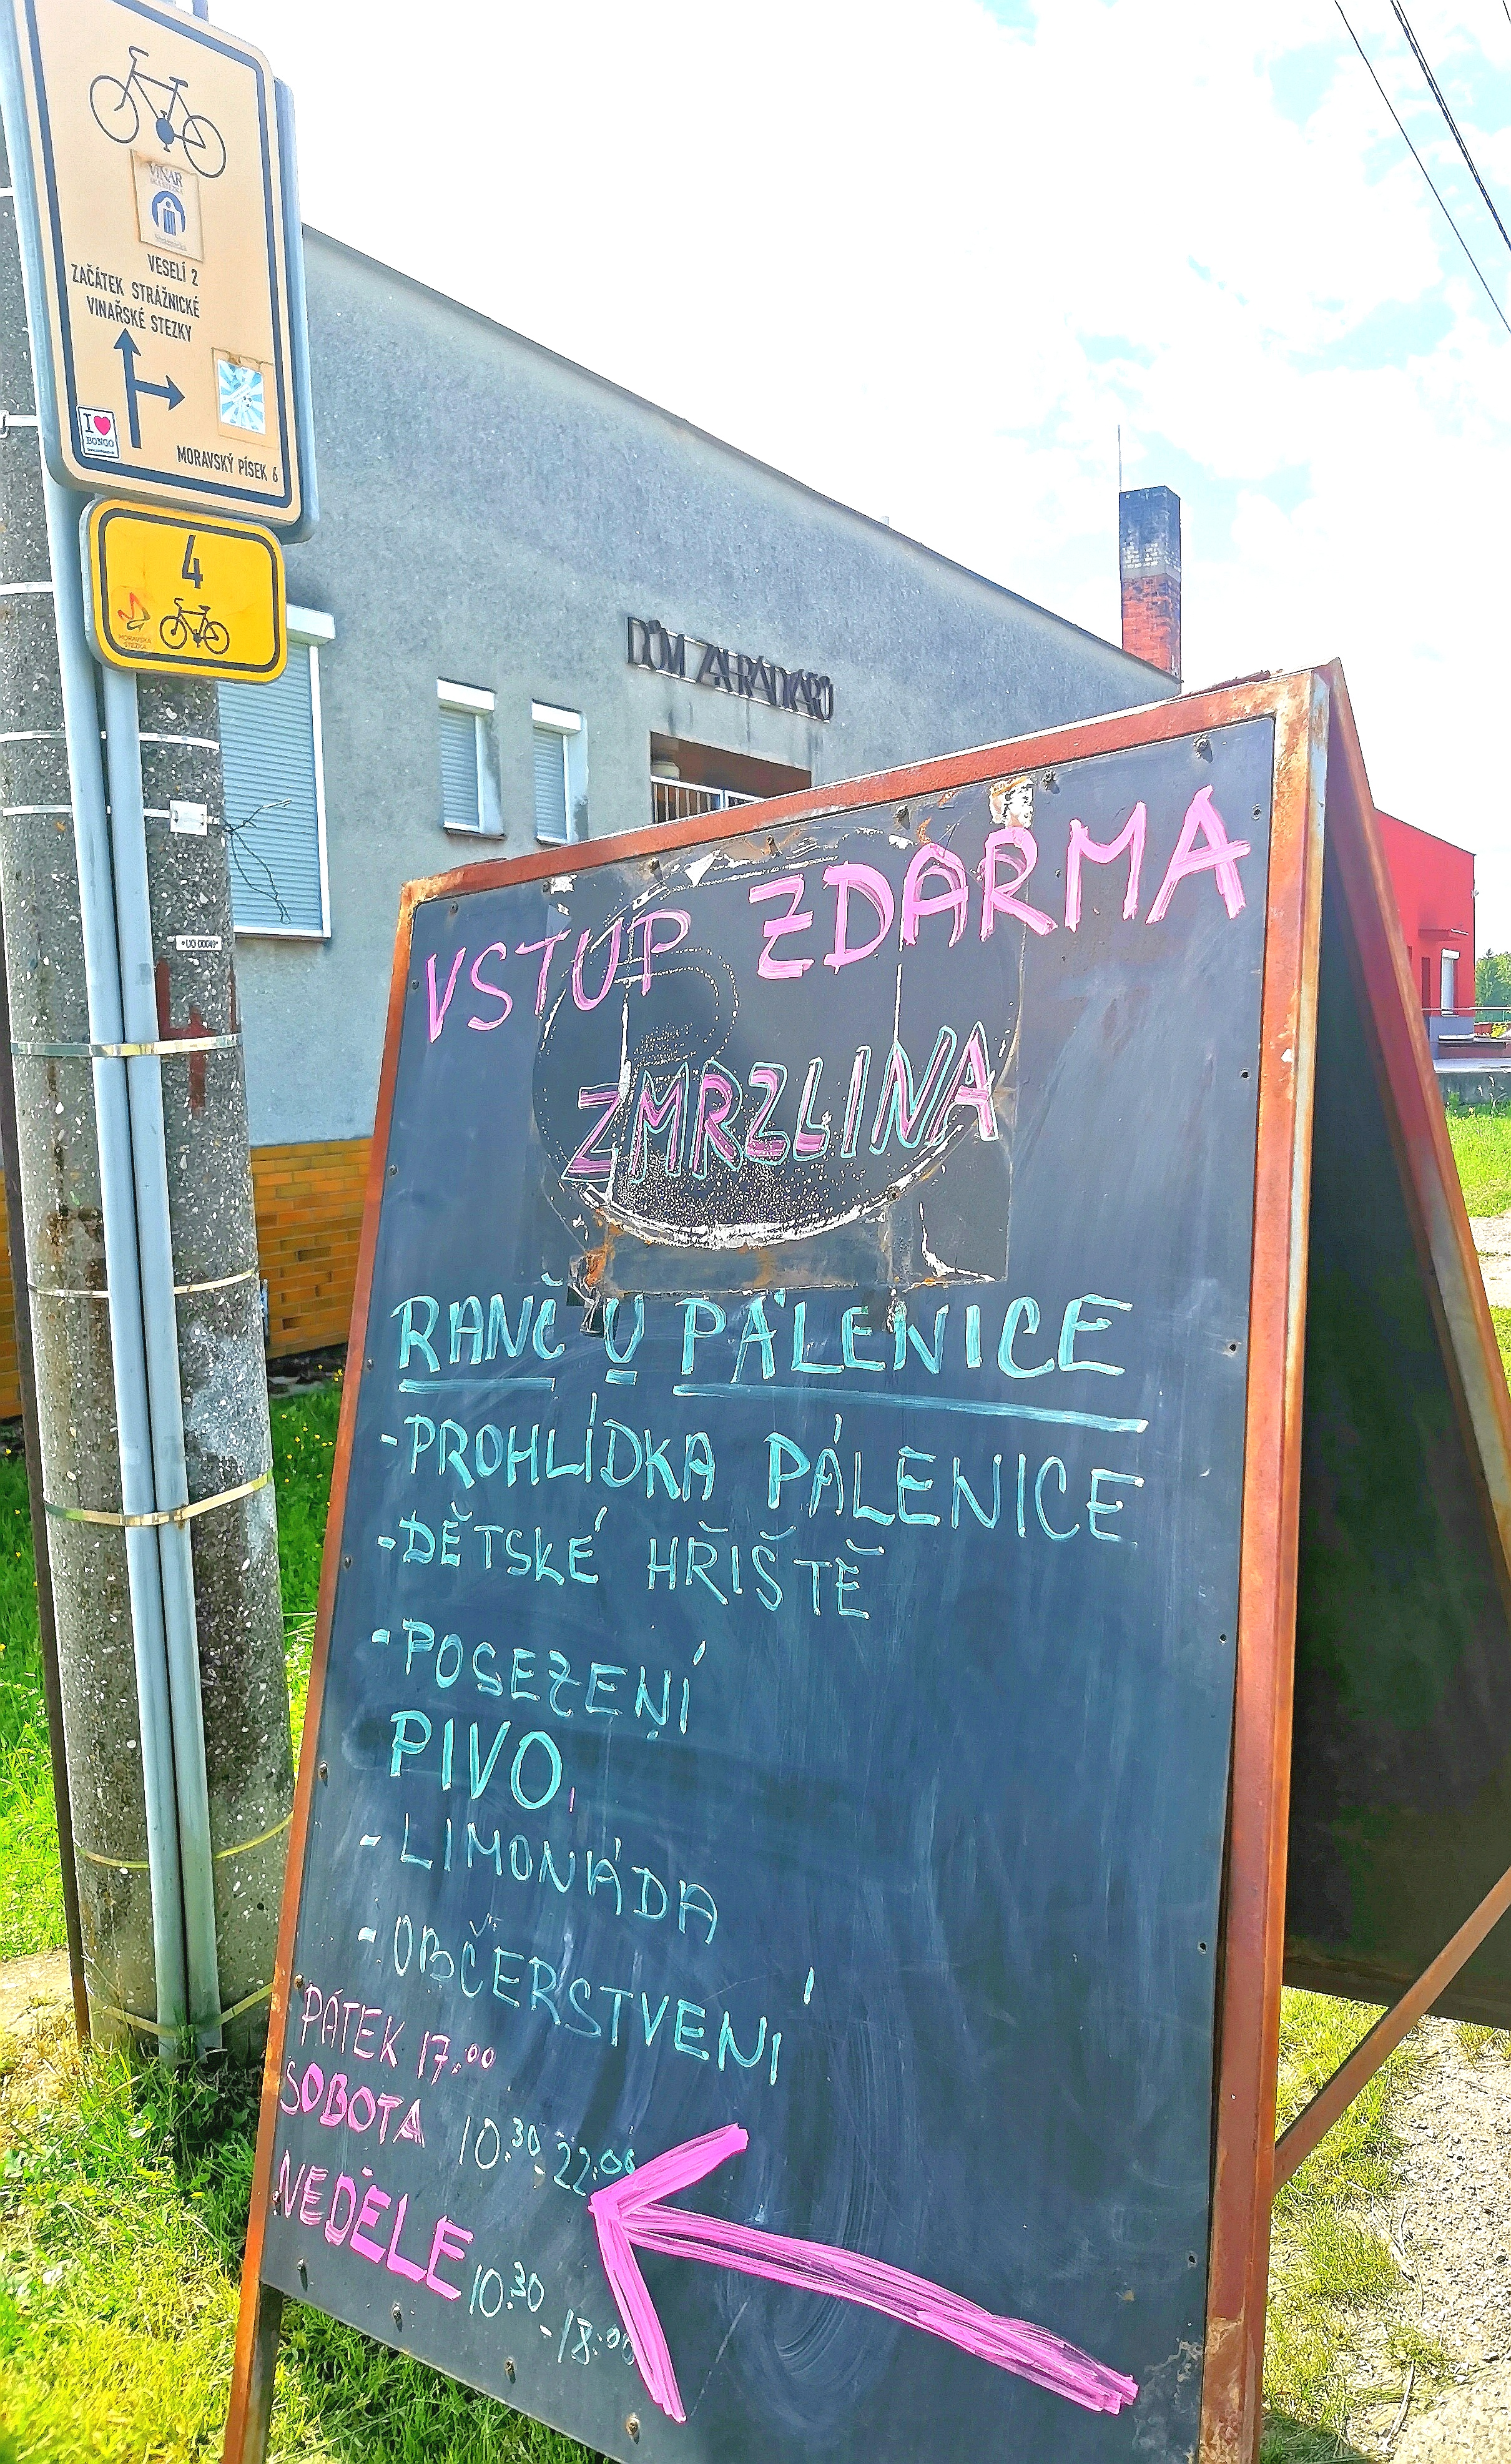 VINAŘ
SKÁ STEZKA
Strážnická
VESELÍ 2
ZAČÁTEK STRÁŽNICKÉ
VINAŘSKÉ STEZKY
I ❤
BONGO
MORAVSKÝ PÍSEK 6
4
MORAVSKÁ
STEZKA
DŮM ZAHRÁDKÁŘŮ
VSTUP ZDARMA
ZMRZLINA
RANČ U PÁLENICE
-PROHLÍDKA PÁLENICE
-DĚTSKÉ HŘIŠTĚ
-POSEZENÍ
PIVO,
- LIMONÁDA
- OBČERSTVENÍ
PÁTEK 17:00
SOBOTA 10:30-22:00
NEDĚLE 10:30
-18:00